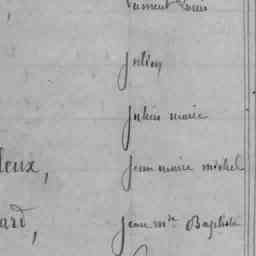 Julien
Julien marie
leux, jean marie michel
ard, jean mie Baptiste